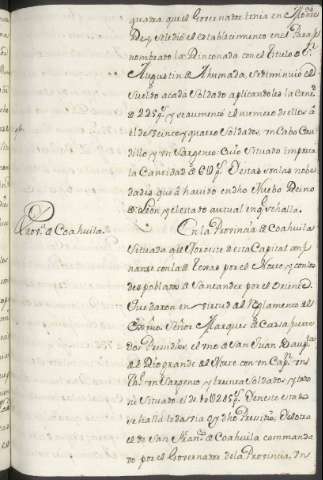 guarda que el Governador tenia en Monte
Rey, y se le dio el establecimento en el Parage
nombrado la Rinconada con el titulo de Sn.
Augustin de Ahumada, se diminuio el
Sueldo a cada Soldado aplicandoles la Cant.
de 225 p.s y se aumentó el numero de ellos á
el de Veinte, y quatro Soldados, un Cabo Cau-
dillo y un Sargento. Cuio Situado importa
la Cantidad de
Estas son las nobe-
dades que á havido en dho Nuebo Reino
de Leon, y el estado actual en q.e se halla.
Prov.a de Coahuila.
En la Provincia de Coahuila
Situada al Noroeste de esta Capital con-
finante con la de Texas por el Norte, y con los
despoblados de Santander por el Oriente
Quedaron en virtud del Reglamento del
Exmo. Señor Marques de Casa fuerte
dos Presidios, el uno de San Juan Baup.ta
del Rio grande del Norte con un Cap.n un
Then.te un Sargento, y treinta Soldados, y su to-
tal Situado el de
En este esta-
do se halla todavia oy dho Presidio. El otro
el de San Fran.co de Coahuila comanda-
do por el Governador de la Provincia, un